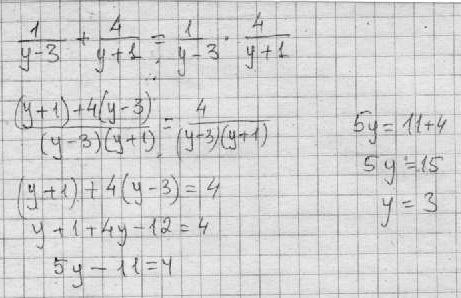 1/(y-3) + 4/(y+1) = 1/(y-3) · 4/(y+1)
((y+1)+4(y-3))/((y-3)(y+1)) = 4/((y-3)(y+1))
(y+1)+4(y-3)=4
y+1+4y-12=4
5y-11=4
5y=11+4
5y=15
y=3